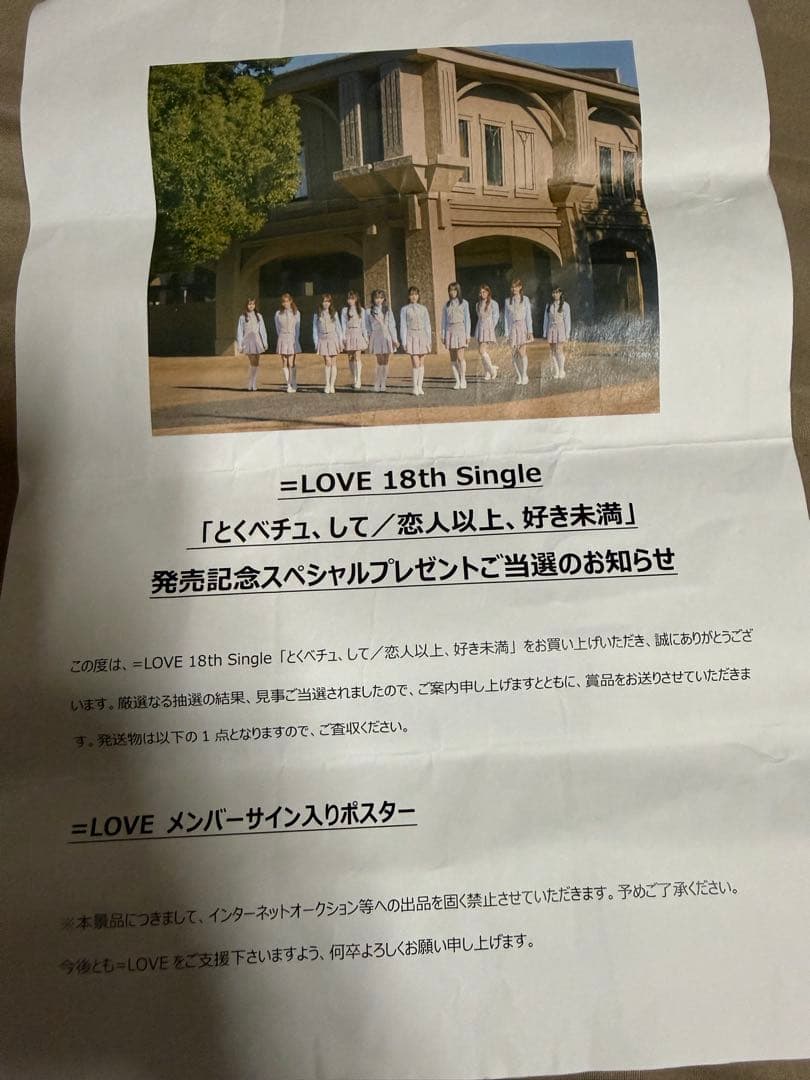 =LOVE 18th Single
「とくベチュ、して／恋人以上、好き未満」
発売記念スペシャルプレゼントご当選のお知らせ
この度は、=LOVE 18th Single「とくベチュ、して／恋人以上、好き未満」をお買い上げいただき、誠にありがとうござ
います。厳選なる抽選の結果、見事ご当選されましたので、ご案内申し上げますとともに、賞品をお送りさせていただきま
す。発送物は以下の1点となりますので、ご査収ください。
=LOVE メンバーサイン入りポスター
※本景品につきまして、インターネットオークション等への出品を固く禁止させていただきます。予めご了承ください。
今後とも=LOVEをご支援下さいますよう、何卒よろしくお願い申し上げます。